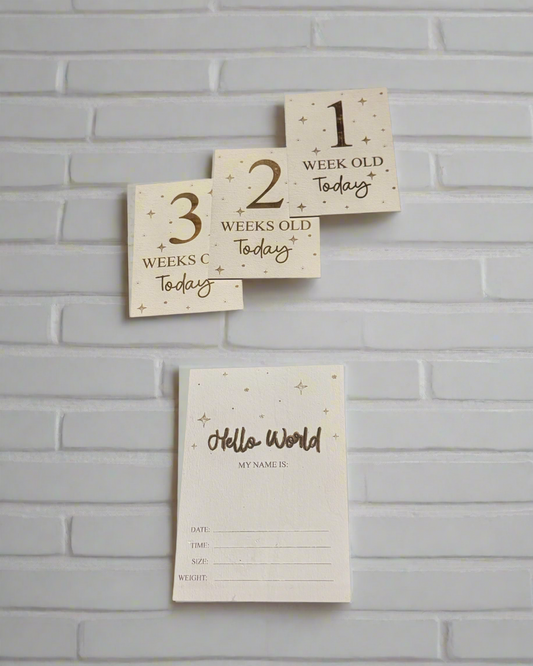 1
WEEK OLD
Today
2
WEEKS OLD
Today
3
WEEKS O
Today
Hello World
MY NAME IS:
DATE:
TIME:
SIZE:
WEIGHT: